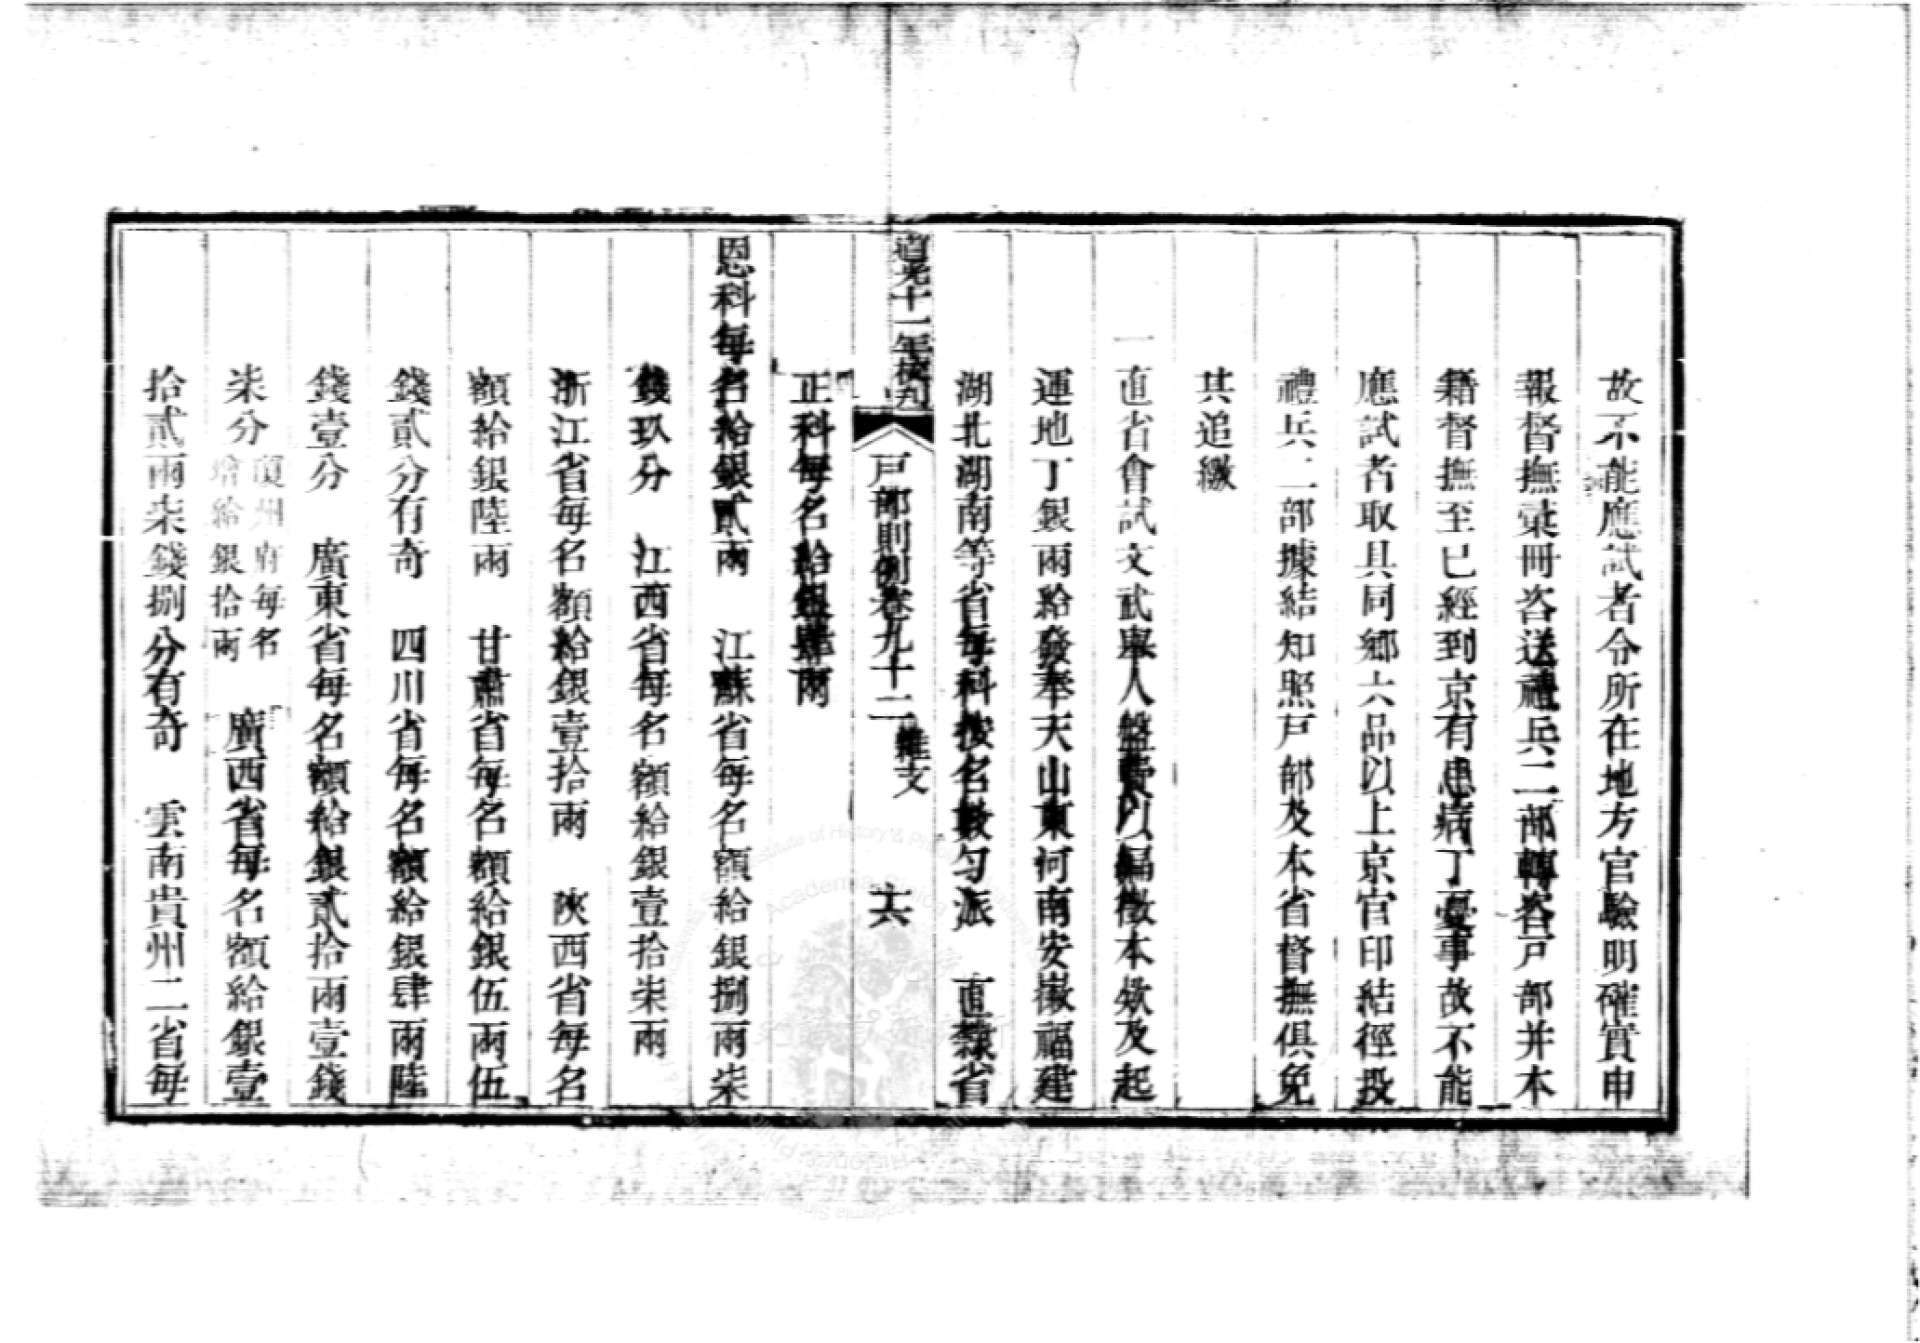 故不能應試者令所在地方官驗明確實申
報督撫彚冊咨送禮兵二部轉咨戸部并本
籍督撫至已經到京有患病丁憂事故不能
應試者取具同鄉六品以上京官印結徑投
禮兵二部據結知照戸部及本省督撫俱免
其追繳
一直省會試文武舉人盤費以編徵本欸及起
運地丁銀兩給發奉天山東河南安徽福建
湖北湖南等省每科按名數勻派　直隸省
道光十一年校刊
戸部則例卷九十二
雜支
十六
正科每名給銀肆兩
恩科每名給銀貳兩　江蘇省每名額給銀捌兩柒
錢玖分　江西省每名額給銀壹拾柒兩
浙江省每名額給銀壹拾兩　陝西省每名
額給銀陸兩　甘肅省每名額給銀伍兩伍
錢貳分有奇　四川省每名額給銀肆兩陸
錢壹分　廣東省每名額給銀貳拾兩壹錢
柒分
瓊州府每名
增給銀拾兩
廣西省每名額給銀壹
拾貳兩柒錢捌分有奇　雲南貴州二省每